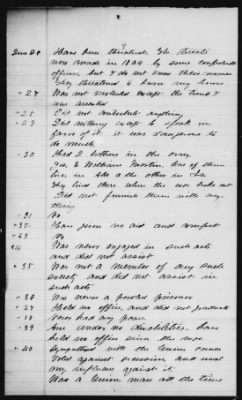 Ques 24 Have been threatened. The threats
were made in 1864 by some confederate
officers but I do not know their names
They threatened to burn my house
- 27 Was not molested except the time I
was arrested
- 28 Did not contribute anything
- 29 Did nothing except to speak in
favor of it. it was dangerous to
do much.
- 30 Had 2 brothers in the army.
& William one of them
lives in the other in
They lived there when the war broke out
Did not furnish them with any
thing
- 31 No
- 32 Have given no aid and comfort
- 33 No
34 Was never engaged in such acts
and did not assist
- 35 Was not a member of any such
society and did not assist in
such acts
- 36 Was never a paroled prisoner
- 37 Held no office, and did not graduate
- 38 Never had any pass
- 39 Am under no disabilities have
held no office since the war
- 40 Sympathized with the Union cause
Voted against secession and used
my influence against it.
Was a Union man all the time